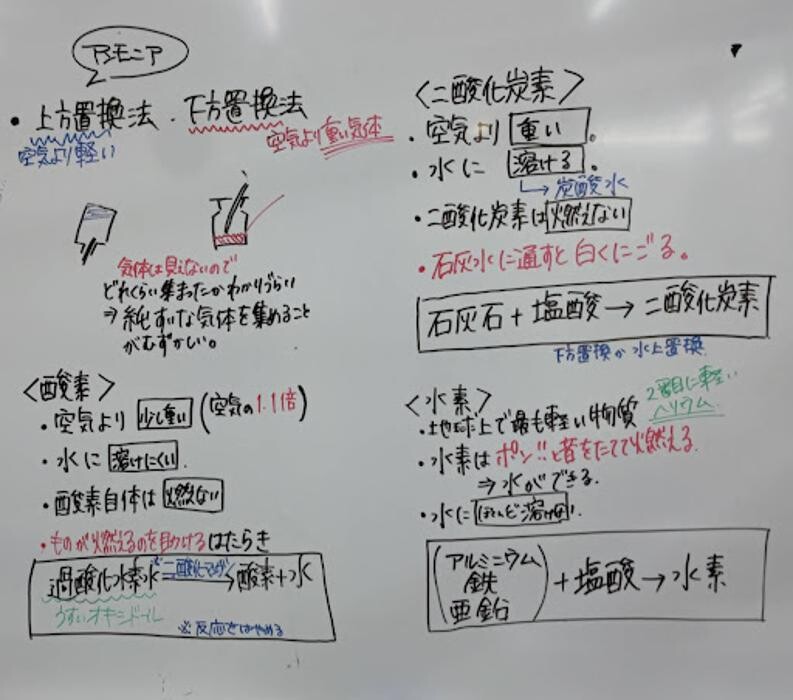 アンモニア
・上方置換法・下方置換法
空気より軽い
空気より重い気体
気体は見えないので
どれくらい集まったかわかりづらい
⇒純すいな気体を集めること
がむずかしい。
<酸素>
・空気より 少し重い (空気の1.1倍)
・水に 溶けにくい.
・酸素自体は 燃えない
・ものが燃えるのを助けるはたらき
※二酸化マンガン
過酸化水素水→酸素+水
うすいオキシドール
※反応をはやめる
<二酸化炭素>
・空気より 重い。
・水に 溶ける。
↳炭酸水
・二酸化炭素は 燃えない
・石灰水に通すと白くにごる。
石灰石+塩酸→二酸化炭素
下方置換か水上置換
<水素>
2番目に軽い
ヘリウム
・地球上で最も軽い物質
・水素はポン!!と音をたてて燃える
⇒水ができる.
・水に ほとんど溶けない.
アルミニウム
鉄
亜鉛
+塩酸→水素